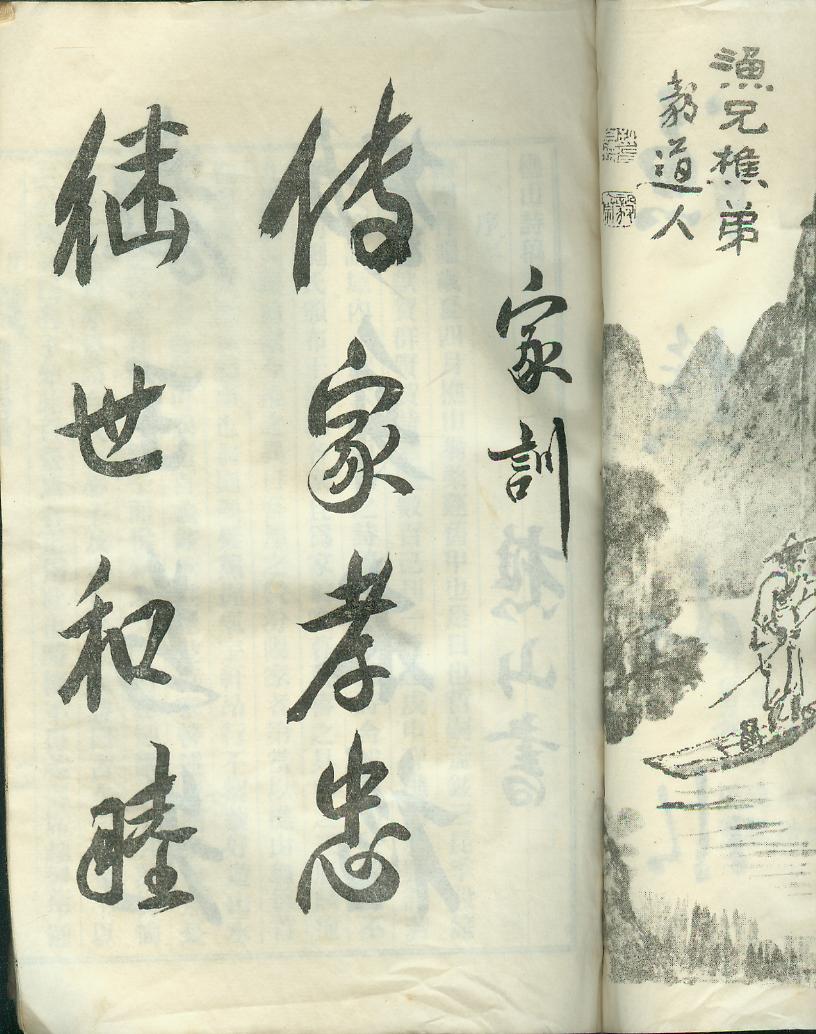 漁兄樵弟
毅道人
家訓
傳家孝忠
继世和睦